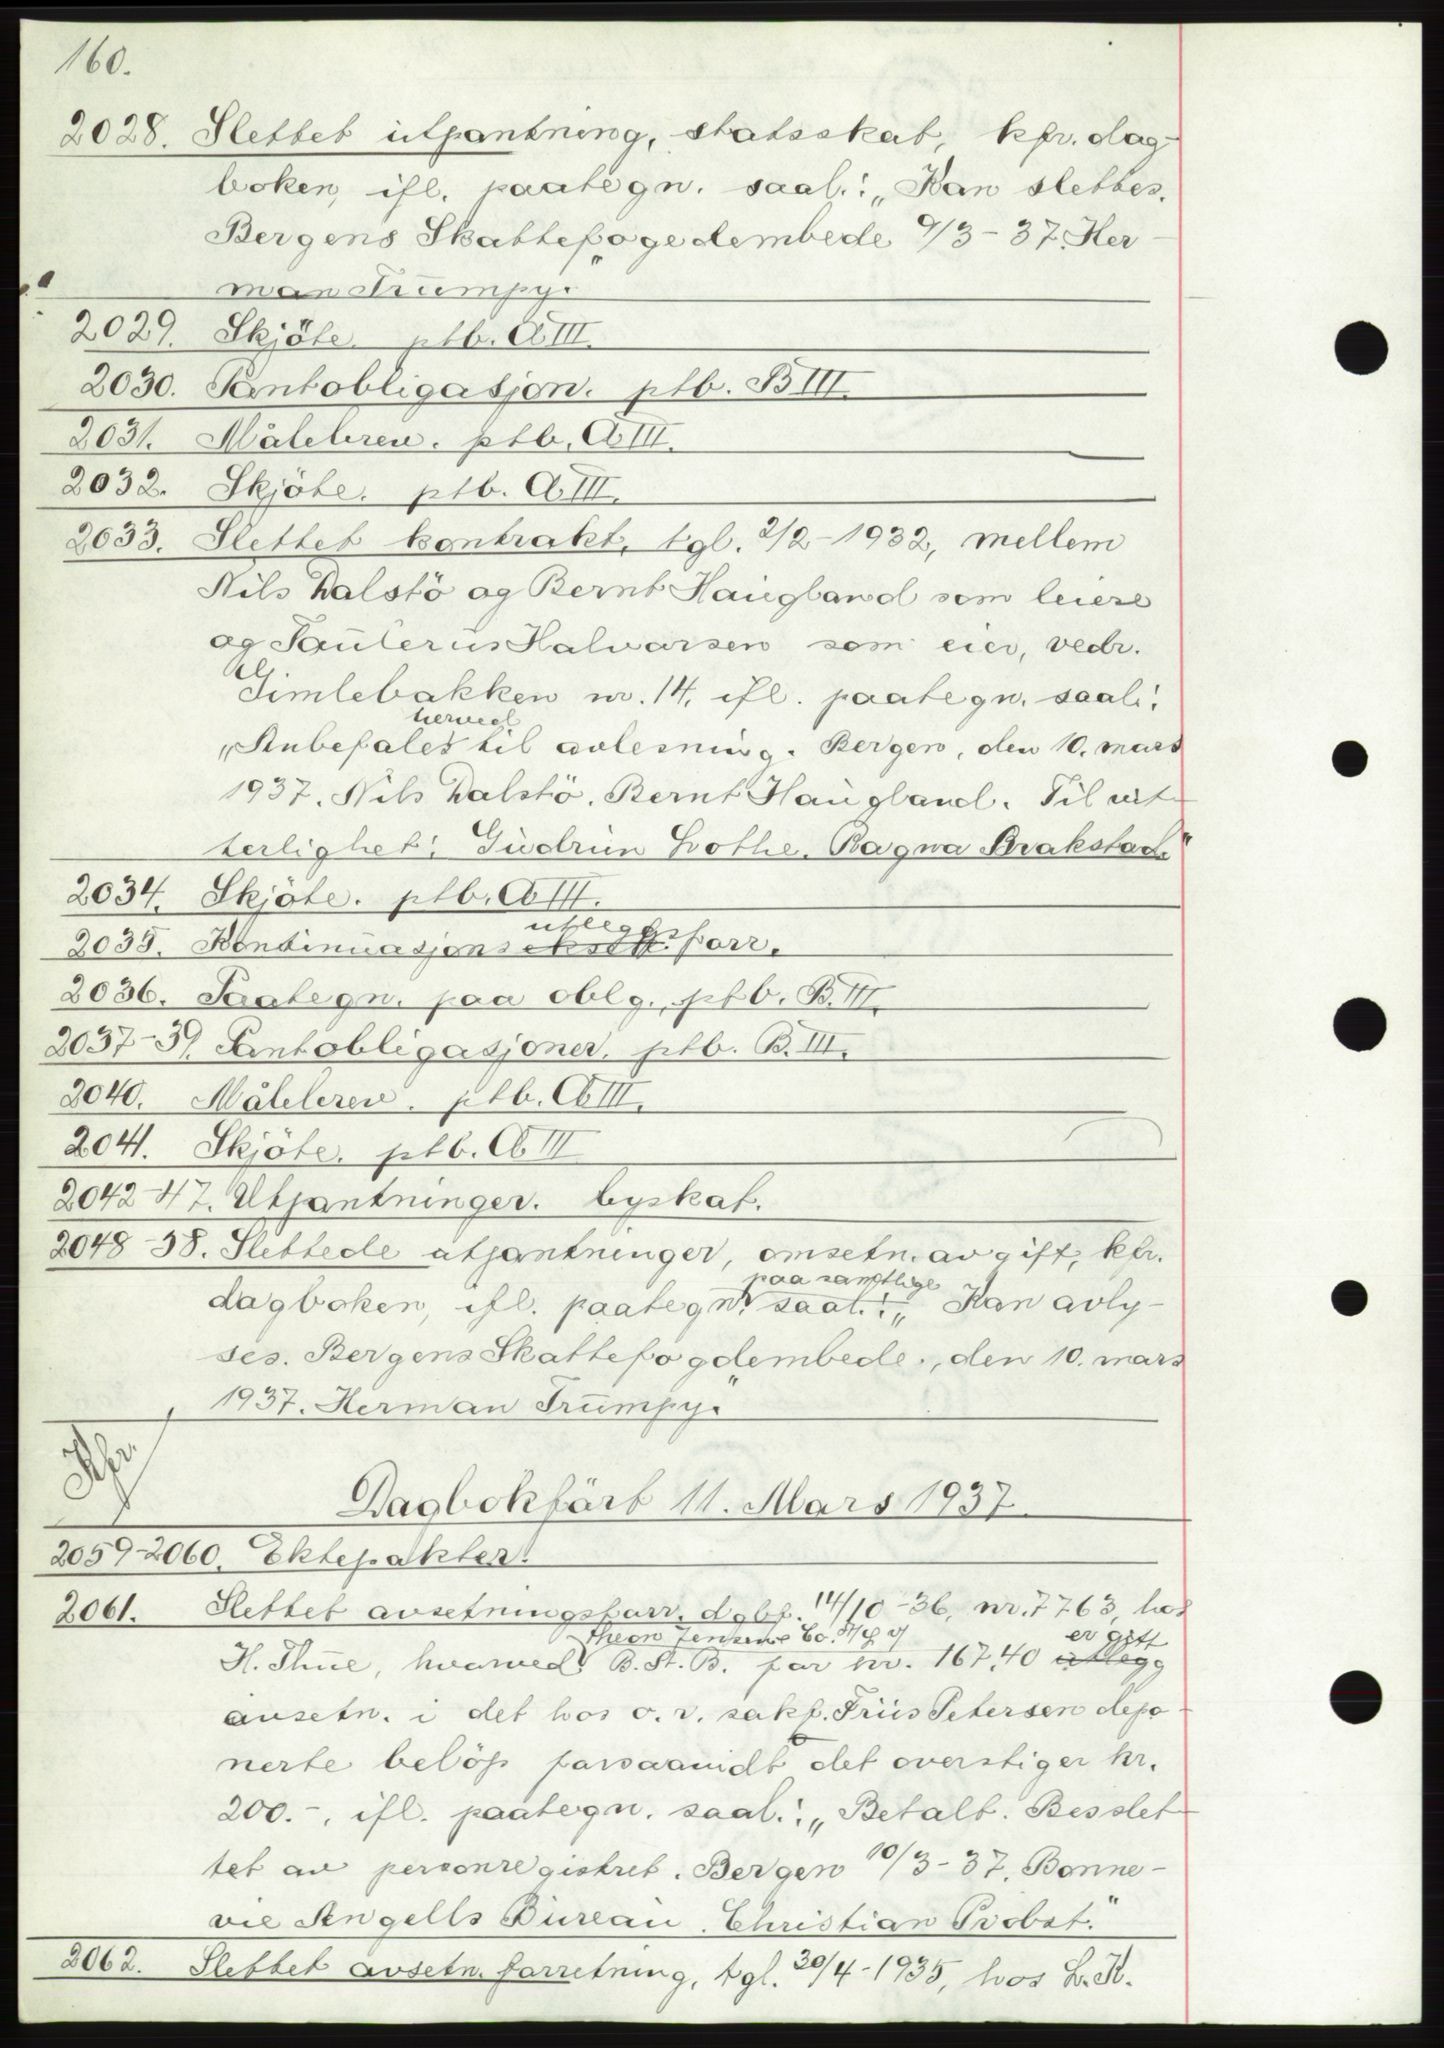 160.
2028. Slettet utpantning, statsskat, kfr. dag-
boken, ifl. paategn. saal.: „Kan slettes.
Bergens Skattefogedembede 9/3-37. Her-
man Trumpy."
2029. Skjöte. ptb. A III.
2030. Pantobligasjon. ptb. B III.
2031. Målebrev. ptb. A III.
2032. Skjöte. ptb. A III.
2033. Slettet kontrakt, tgl. 2/2-1932, mellem
Nils Dalstö og Bernt Haugland som leiere
og Paulerus Halvorsen som eier, vedr.
Gimlebakken nr. 14, ifl. paategn. saal.:
herved
„Anbefales til avlesning. Bergen, den 10. mars
1937. Nils Dalstö. Bernt Haugland. Til vit-
terlighet: Gudrun Lothe. Ragna Brakstad."
2034. Skjöte. ptb. A III.
utleggs
2035. Kontinuasjons forr.
2036. Paategn. paa oblg., ptb. B. III.
2037-39. Pantobligasjoner. ptb. B. III.
2040. Målebrev. ptb. A III.
2041. Skjöte. ptb. A III
2042-47. Utpantninger. byskat.
2048-58. Slettede utpantninger, omsetn. avgift, kfr.
paa samtlige
dagboken, ifl. paategn. saal.: „Kan avly-
ses. Bergens Skattefogdembede., den 10. mars
1937. Herman Trumpy."
Kfr.
Dagbokført 11. Mars 1937.
2059-2060. Ektepakter.
2061. Slettet avsetningsforr. dgbf. 14/10-36, nr. 7763, hos
er gitt
H. Thue, hvorved B. St. B. for kr. 167,40 utlegg
avsetn. i det hos o. r. sakf. Friis Petersen depo-
nerte belöp forsaavidt det overstiger kr.
200.-, ifl. paategn. saal.: „Betalt. Bes slet-
tet av personregistret. Bergen 10/3-37. Bonne-
vie Angells Bureau. Christian Probst."
2062. Slettet avsetn. forretning, tgl. 30/4-1935, hos L. K.